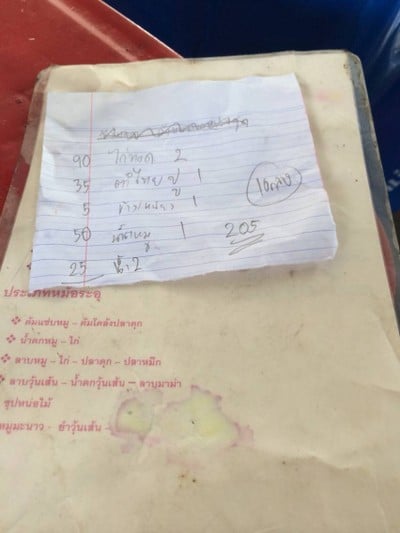 90 ไก่ทอด 2
35 ตำไทยปู 1
5 ข้าวเหนียว 1
50 หมู 1 205
25 น้ำ 2
ประเภทหม้อระอุ
❖ ต้มแซ่บหมู - ต้มโคล้งปลาดุก
❖ น้ำตกหมู - ไก่
❖ ลาบหมู - ไก่ - ปลาดุก - ปลาหมึก
❖ ลาบวุ้นเส้น - น้ำตกวุ้นเส้น - ลาบมาม่า
ซุปหน่อไม้
หมูมะนาว - ยำวุ้นเส้น -